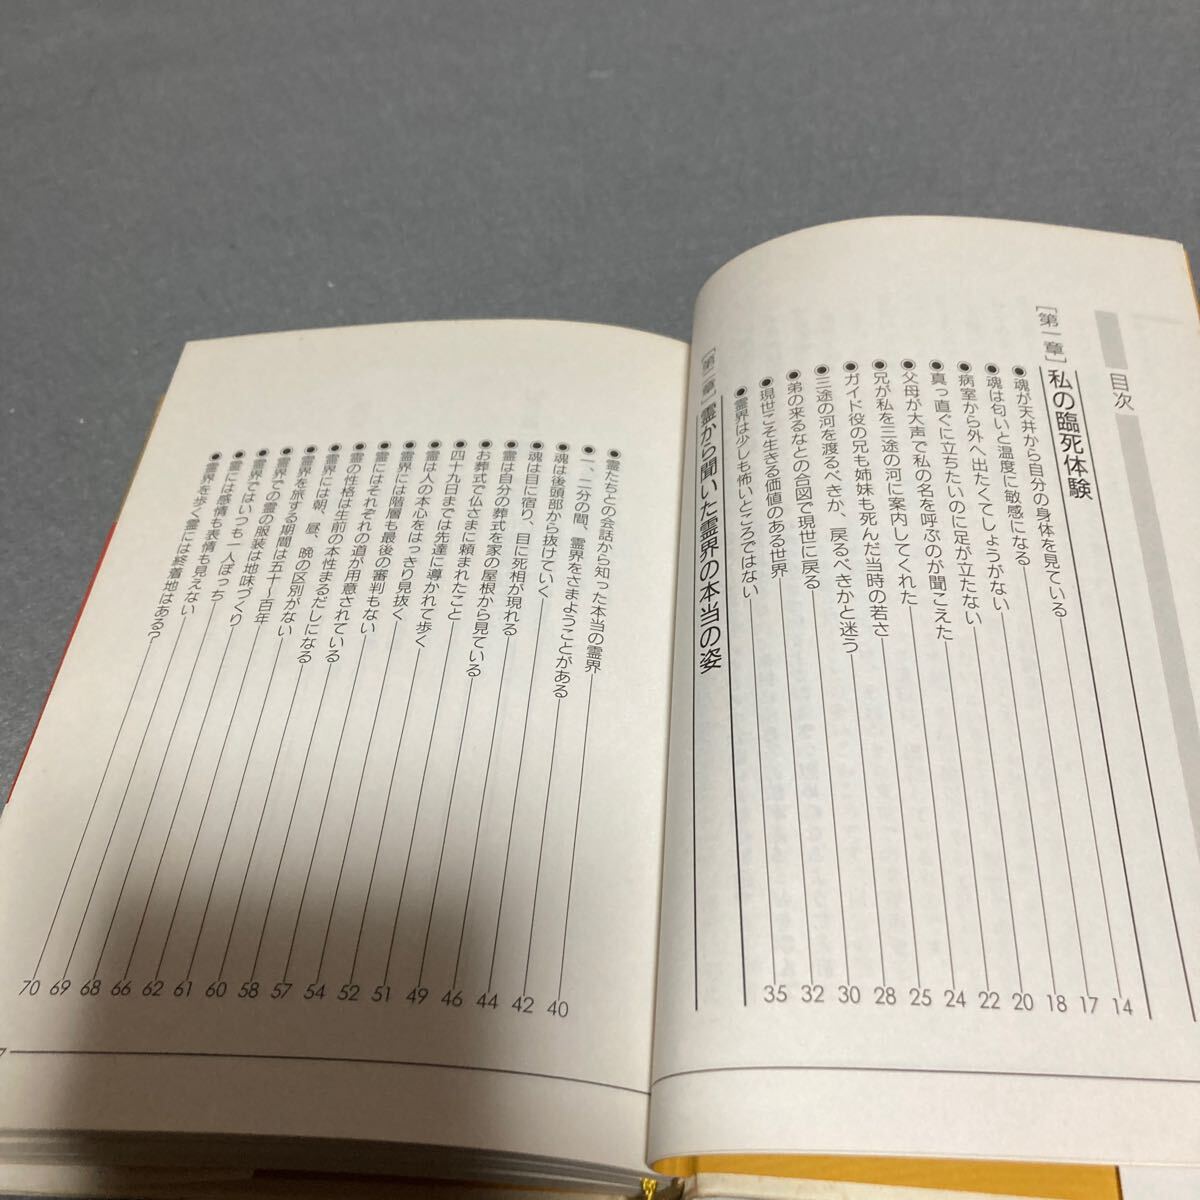 目次
[第一章] 私の臨死体験
●魂が天井から自分の身体を見ている 14
●魂は匂いと温度に敏感になる 17
●病室から外へ出たくてしょうがない 18
●真っ直ぐに立ちたいのに足が立たない 20
●父母が大声で私の名を呼ぶのが聞こえた 22
●兄が私を三途の河に案内してくれた 24
●ガイド役の兄も姉妹も死んだ当時の若さ 25
●三途の河を渡るべきか、戻るべきかと迷う 28
●弟の来るなとの合図で現世に戻る 30
●現世こそ生きる価値のある世界 32
●霊界は少しも怖いところではない 35
[第二章] 霊から聞いた霊界の本当の姿
●霊たちとの会話から知った本当の霊界 40
●一、二分の間、霊界をさまようことがある 42
●魂は後頭部から抜けていく 44
●魂は目に宿り、目に死相が現れる 46
●霊は自分の葬式を家の屋根から見ている 49
●お葬式で仏さまに頼まれたこと 51
●四十九日までは先達に導かれて歩く 52
●霊は人の本心をはっきり見抜く 54
●霊界には階層も最後の審判もない 57
●霊にはそれぞれの道が用意されている 58
●霊の性格は生前の本性まるだしになる 60
●霊界には朝、昼、晩の区別がない 61
●霊界を旅する期間は五十〜百年 62
●霊界での霊の服装は地味づくり 66
●霊界ではいつも一人ぼっち 68
●霊には感情も表情も見えない 69
●霊界を歩く霊には終着地はある? 70
7